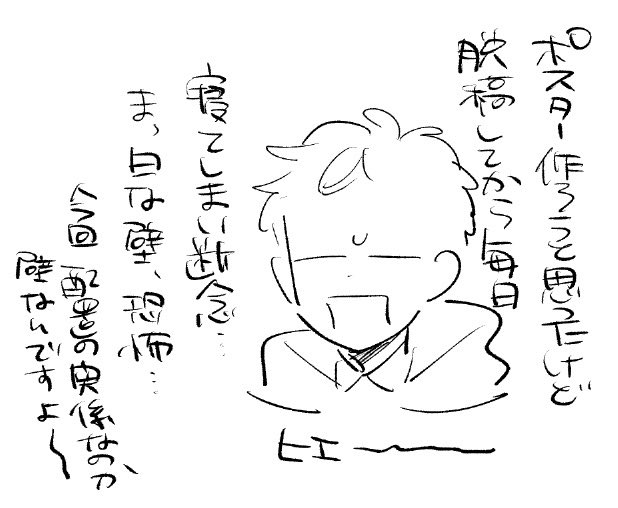 ポスター作ろうと思ってたけど
脱稿してから毎日
寝てしまい断念…
ま、白な壁、恐怖…
今回配置の関係なのか
壁ないですよ〜
ヒエー